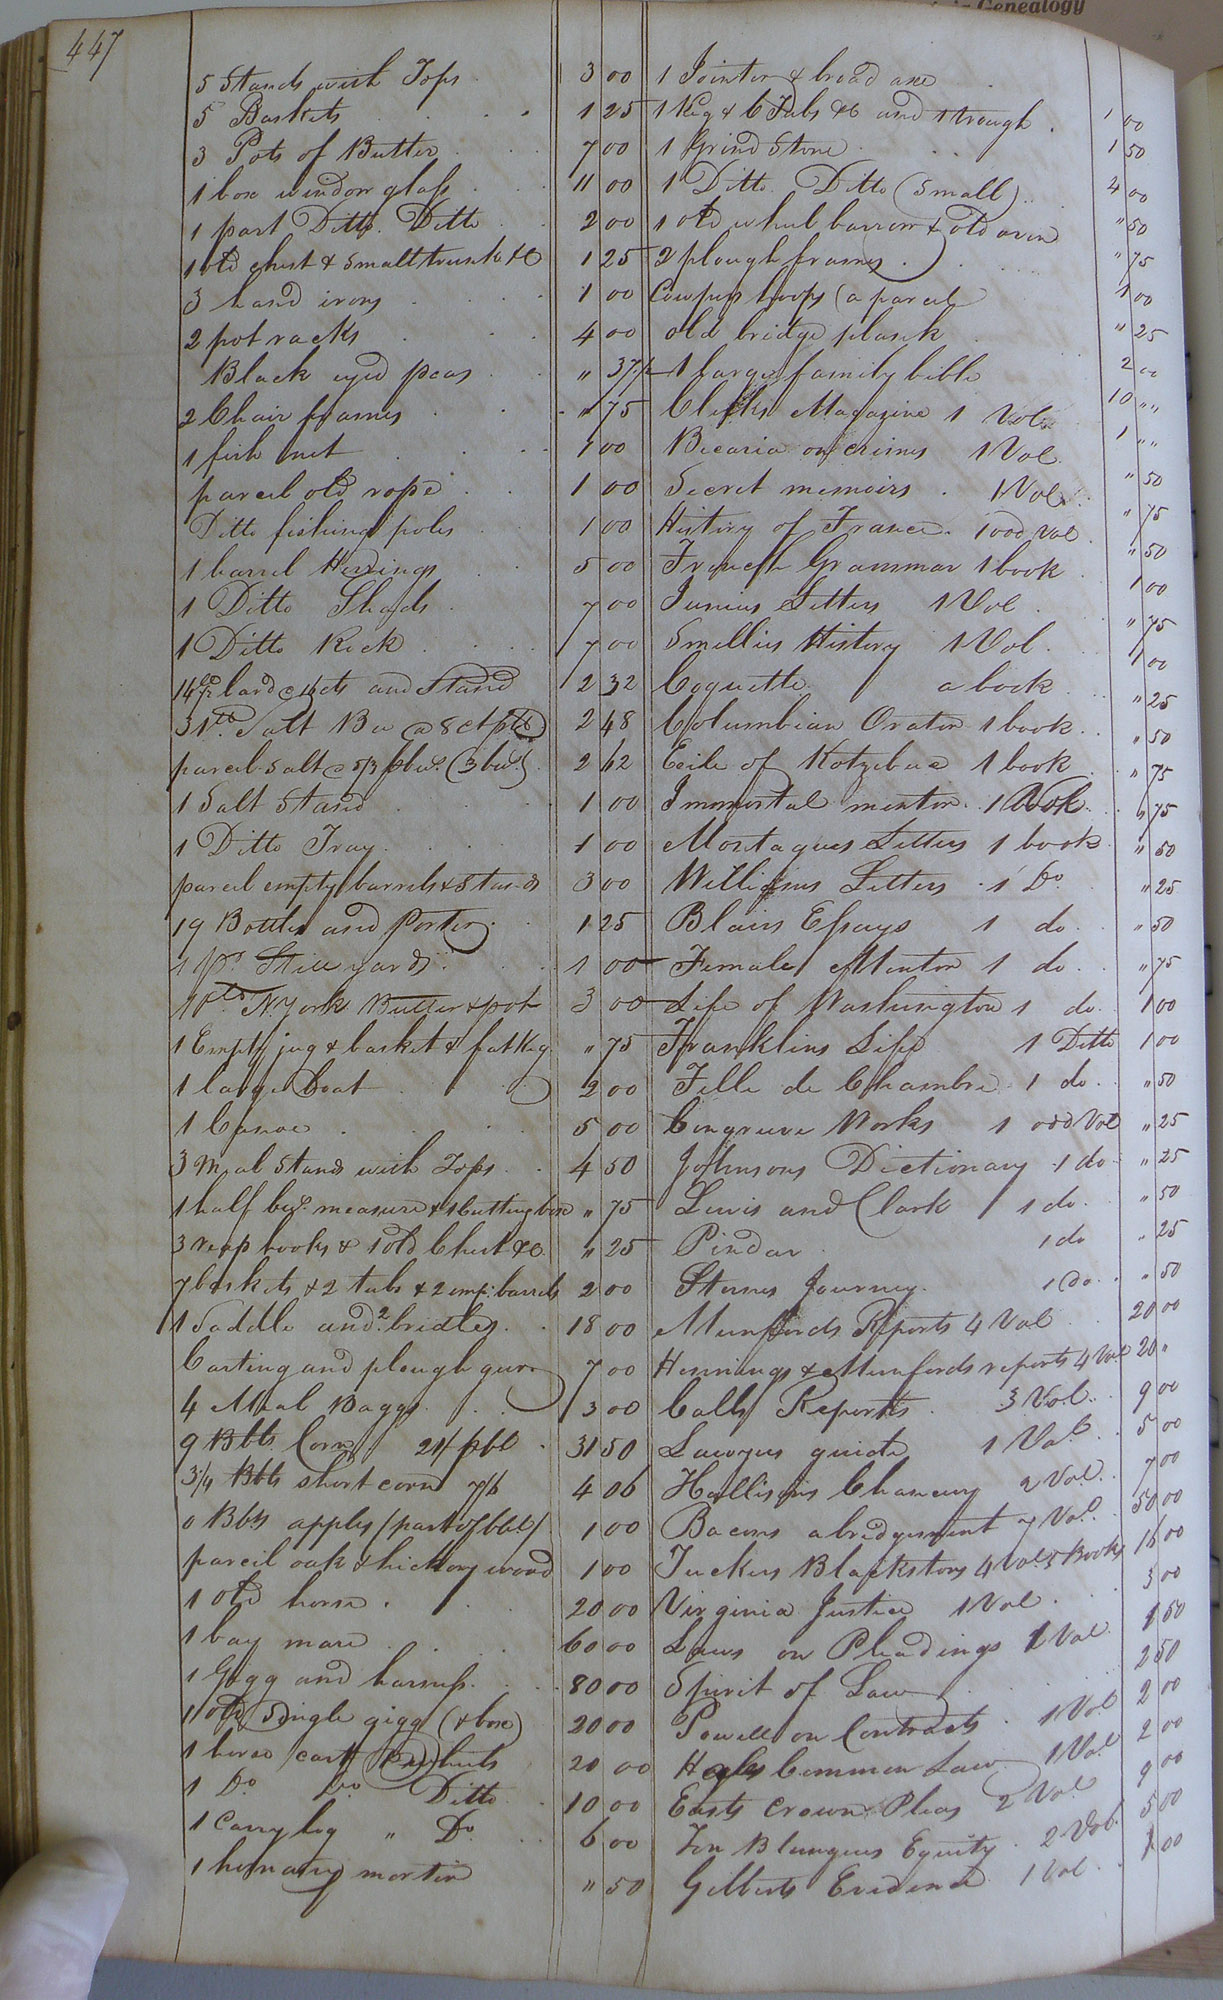 Genealogy
447
5 Stands with Tops 3 00
5 Baskets 1 25
3 Pots of Butter 7 00
1 box window glass 11 00
1 part Ditto Ditto 2 00
1 old chest & small trunk &c 1 25
3 hand irons 1 00
2 pot racks 4 00
Black eyed peas " 37 1/2
2 Chair frames " 75
1 fish net 1 00
parcel old rope 1 00
Ditto fishing poles 1 00
1 barrel Herrings 5 00
1 Ditto Shads 7 00
1 Ditto Rock 7 00
lard @ cts and Stand 2 32
31 lb Salt Bee @ 8 ct plb 2 48
parcel Salt @ 5/3 pbus. (3 bus.) 2 62
1 Salt Stand 1 00
1 Ditto Tray 1 00
parcel empty barrels & Stands 3 00
19 Bottles and Porter 1 25
1 pr. Stillyards 1 00
1 N. York Butter & pot 3 00
1 Empty jug & basket & fat keg " 75
1 large boat 2 00
1 Canoe 5 00
3 Meal Stands with Tops 4 50
1 half bus. measure & 1 Cutting box " 75
3 reap hooks & 1 old Chest &c. " 25
7 baskets & 2 tubs & 2 emp: barrels 2 00
1 Saddle and 2 bridles 18 00
Carting and plough gear 7 00
4 Meal Baggs 3 00
9 Bbls Corn 21/ pbl 31 50
3 1/4 Bbls short corn 7/6 4 06
0 Bbls apples (part of bbl) 1 00
parcel oak & hickory wood 1 00
1 old horse 20 00
1 bay mare 60 00
1 Gigg and harness 80 00
1 old Single gigg (& box) 20 00
1 horse cart wheels 20 00
1 Do Do Ditto 10 00
1 Carrylog " Do 6 00
1 homany mortin " 50
1 Jointer & broad axe 1 00
1 Keg & 6 Tubs &c and 1 trough 1 50
1 Grind Stone 4 00
1 Ditto Ditto (Small) " 50
1 old wheel barrow & old oven " 75
2 plough frames 1 00
Cowpers hoops (a parcel " 25
old bridge plank 2 00
1 large family bible 10 "
Clerks Magazine 1 Vol 1 "
Becaria on crimes 1 Vol " 50
Secret memoirs 1 Vol " 75
History of France 1 odd Vol " 50
French Grammar 1 book 1 00
Junius Letters 1 Vol " 75
Smellies History 1 Vol 1 00
Coquette a book " 25
Columbian Orator 1 book " 50
Exile of Kotzebue 1 book " 75
Immortal mentor 1 Book " 75
Montagues Letters 1 book " 50
Williams Letters 1 Do " 25
Blairs Essays 1 do " 50
Female Mentor 1 do " 75
Life of Washington 1 do 1 00
Franklins Life 1 Ditto 1 00
Fille de Chambre 1 do " 50
Congreve Works 1 odd Vol " 25
Johnsons Dictionary 1 do " 25
Lewis and Clark 1 do " 50
Pindar 1 do " 25
Sternes Journey 1 Do " 50
Munfords Reports 4 Vol 20 00
Hennings & Munfords reports 4 Vol 20 "
Calls Reports 3 Vol 9 00
Lawyers guide 1 Vol 5 00
Chancery 2 Vol 7 00
Bacons abridgement 7 Vol 50 00
Tuckers Blackstons 4 Vol 5 Books 16 00
Virginia Justice 1 Vol 3 00
Laws on Pleadings 1 Vol 1 50
Spirit of Law 2 50
Powell on Contracts 1 Vol 2 00
Hales Common Law 1 Vol 2 00
Easts Crown Pleas 2 Vol 9 00
Fon Blanques Equity 2 Vol 5 00
Gilberts Evidence 1 Vol 1 00